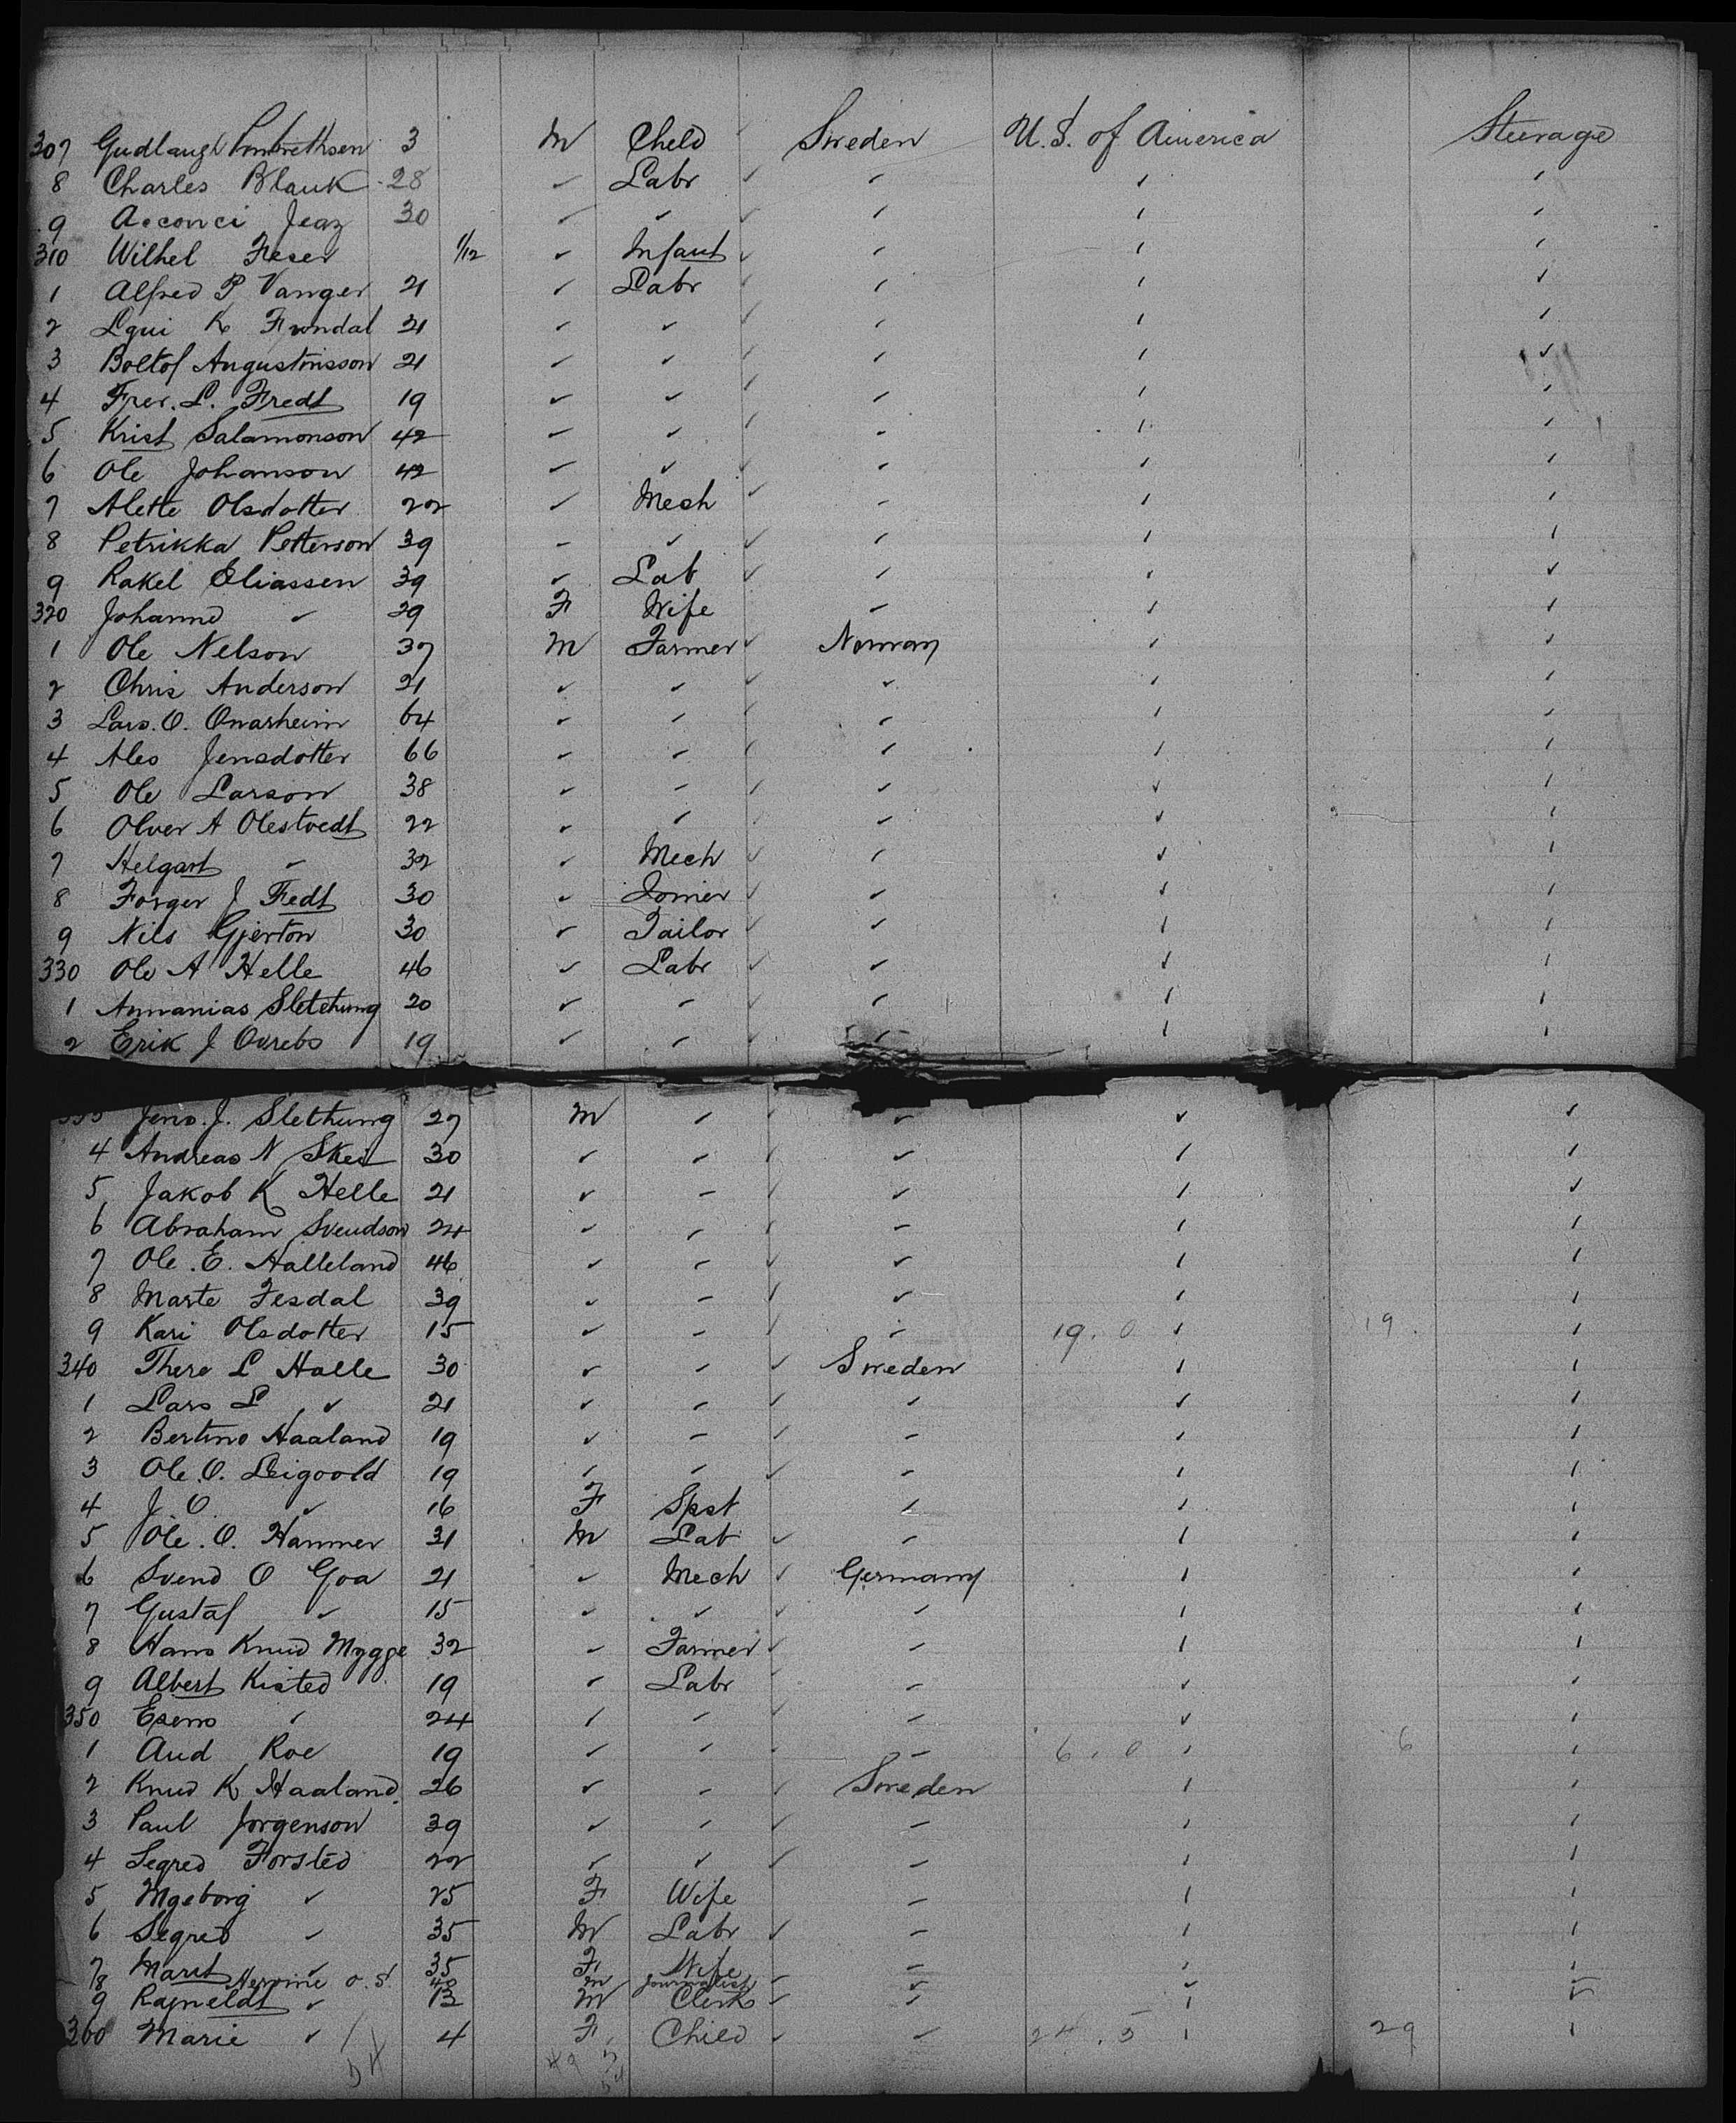 307 Gudlaugh 3 M Child Sweden U.S. of America Steerage
8 Charles Blauk 28 " Labr " " "
9 Acconci Jeaz 30 " " " " "
310 Wilhel Feser 1/12 " Infant " " "
1 Alfred P Vanger 21 " Labr " " "
2 K 21 " " " " "
3 Boltof Angustinsson 21 " " " " "
4 Frer. L. Fredt 19 " " " " "
5 Krist Salamonson 42 " " " " "
6 Ole Johanson 42 " " " " "
7 Alette Olsdotter 22 " Mech " " "
8 Petrikka Petterson 39 " " " " "
9 Rakel Eliassen 39 " Lab " " "
320 Johanne " 29 F Wife " " "
1 Ole Nelson 37 M Farmer Norway " "
2 Chris Anderson 21 " " " " "
3 Lars. O. Onarheim 64 " " " " "
4 Ales Jensdotter 66 " " " " "
5 Ole Larson 38 " " " " "
6 Olver A Olestvedt 22 " " " " "
7 Helgart " 32 " Mech " " "
8 Forger J Fedt 30 " Joiner " " "
9 Nils Gjerton 30 " Tailor " " "
330 Ole A Helle 46 " Labr " " "
1 Annanias Sletehung 20 " " " " "
2 Erik J Ovrebo 19 " " " " "
333 Jens. J. Slethung 27 M " " " "
4 Andreas N Skei 30 " " " " "
5 Jakob K Helle 21 " " " " "
6 Abraham Svendson 24 " " " " "
7 Ole. E. Halleland 46 " " " " "
8 Marte Fesdal 39 " " " " "
9 Kari Olsdotter 15 " " " 19. 0 " 19. "
340 There L Halle 30 " " Sweden " "
1 Lars L " 21 " " " " "
2 Bertino Haaland 19 " " " " "
3 Ole. O. Leigoold 19 " " " " "
4 J. O. " 16 F Spst " " "
5 Ole. O. Hammer 31 M Lab " " "
6 Svend O Goa 21 " Mech Germany " "
7 Gustaf " 15 " " " " "
8 Hans Knud Mygge 32 " Farmer " " "
9 Albert Kisted 19 " Labr " " "
350 " 24 " " " " "
1 Aud Roe 19 " " " 6. 0 " 6 "
2 Knud K Haaland 26 " " Sweden " "
3 Paul Jorgenson 39 " " " " "
4 Segred Forsted 22 " " " " "
5 Ingeborg " 25 F Wife " " "
6 Segred " 35 M Labr " " "
7 Marit " 35 F Wife " " "
8 o. s. 40 M Journalist " " "
9 Ragneldt " 13 M Clerk " " "
360 Marie " 4 F Child " 24. 5 " 29 "
54 49 5
54